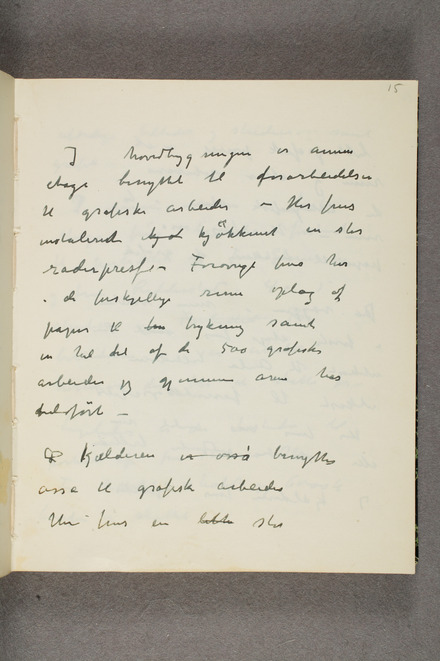 15
I hovedbygningen er annen
etage benyttet til forarbeidelser
til grafiske arbeider – Her fins
installeret kjøkkenet en stor
raderpresse – Forøvrig fins her
i de forskjellige rum oplag af
papir til trykning samt
en hel del af de 500 grafiske
arbeider jeg gjennem aren har
udført –
Kjælderen er også benyttes
ossa til grafisk arbeide
Her fins en stor